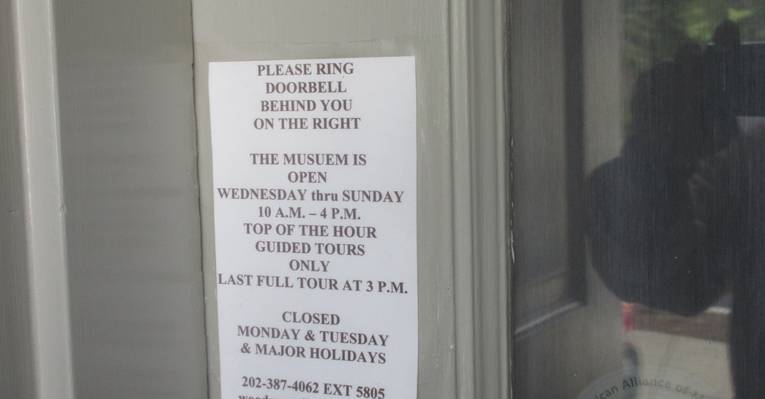 PLEASE RING
DOORBELL
BEHIND YOU
ON THE RIGHT
THE MUSUEM IS
OPEN
WEDNESDAY thru SUNDAY
10 A.M. – 4 P.M.
TOP OF THE HOUR
GUIDED TOURS
ONLY
LAST FULL TOUR AT 3 P.M.
CLOSED
MONDAY & TUESDAY
& MAJOR HOLIDAYS
202-387-4062 EXT 5805
Alliance of